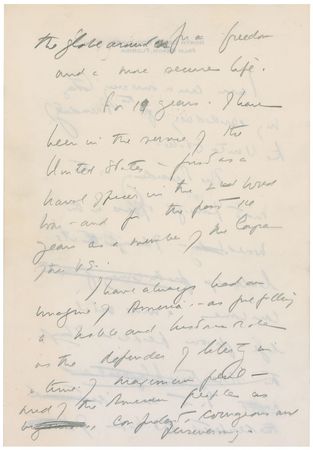 the globe around for a freedom
and a more secure life.
For 19 years I have
been in the service of the
United States – first as a
naval officer in the 2nd World
War – and for the past 14
years as a member of the Congress
of the U.S.
I have always had an
image of America – as fulfilling
a noble and historic role
as the defender of liberty in
a time of maximum peril –
and of the American people as
confident, courageous and
persevering.